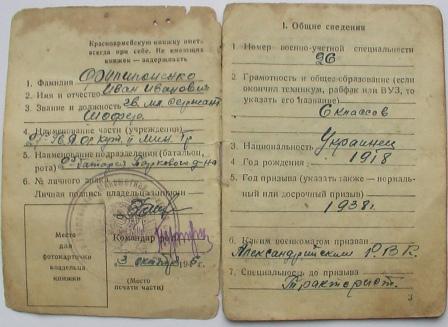 Красноармейскую книжку иметь
всегда при себе. Не имеющих
книжки — задерживать
1. Фамилия
2. Имя и отчество Иван Иванович
3. Звание и должность Гв. мл. сержант
Шофер
4. Наименование части (учреждения)
5. Наименование подразделения (батальон,
рота)
6. № личного знака
Личная подпись владельца книжки
Место
для
фотокарточки
владельца
книжки
Командир
3 октября 194 г.
(Место
печати части)
I. Общие сведения
1. Номер военно-учетной специальности
26
2. Грамотность и общее образование (если
окончил техникум, рабфак или ВУЗ, то
указать его название)
6 классов
3. Национальность Украинец
4. Год рождения 1918
5. Год призыва (указать также — нормаль-
ный или досрочный призыв)
1938 г.
6. Каким военкоматом призван
Александрийским Р.В.К.
7. Специальность до призыва
Тракторист.
3